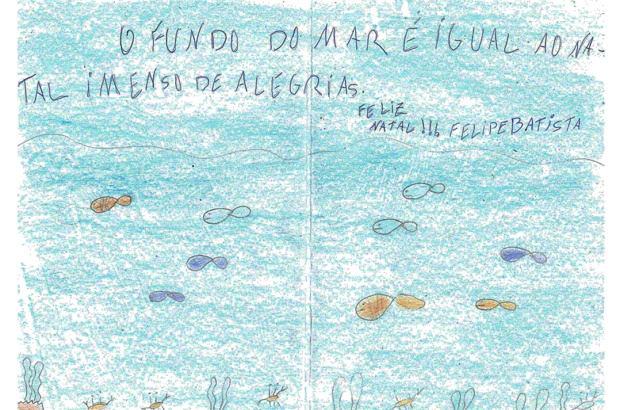 O FUNDO DO MAR É IGUAL AO NA-
TAL IMENSO DE ALEGRIAS.
FELIZ
NATAL!!! FELIPE BATISTA